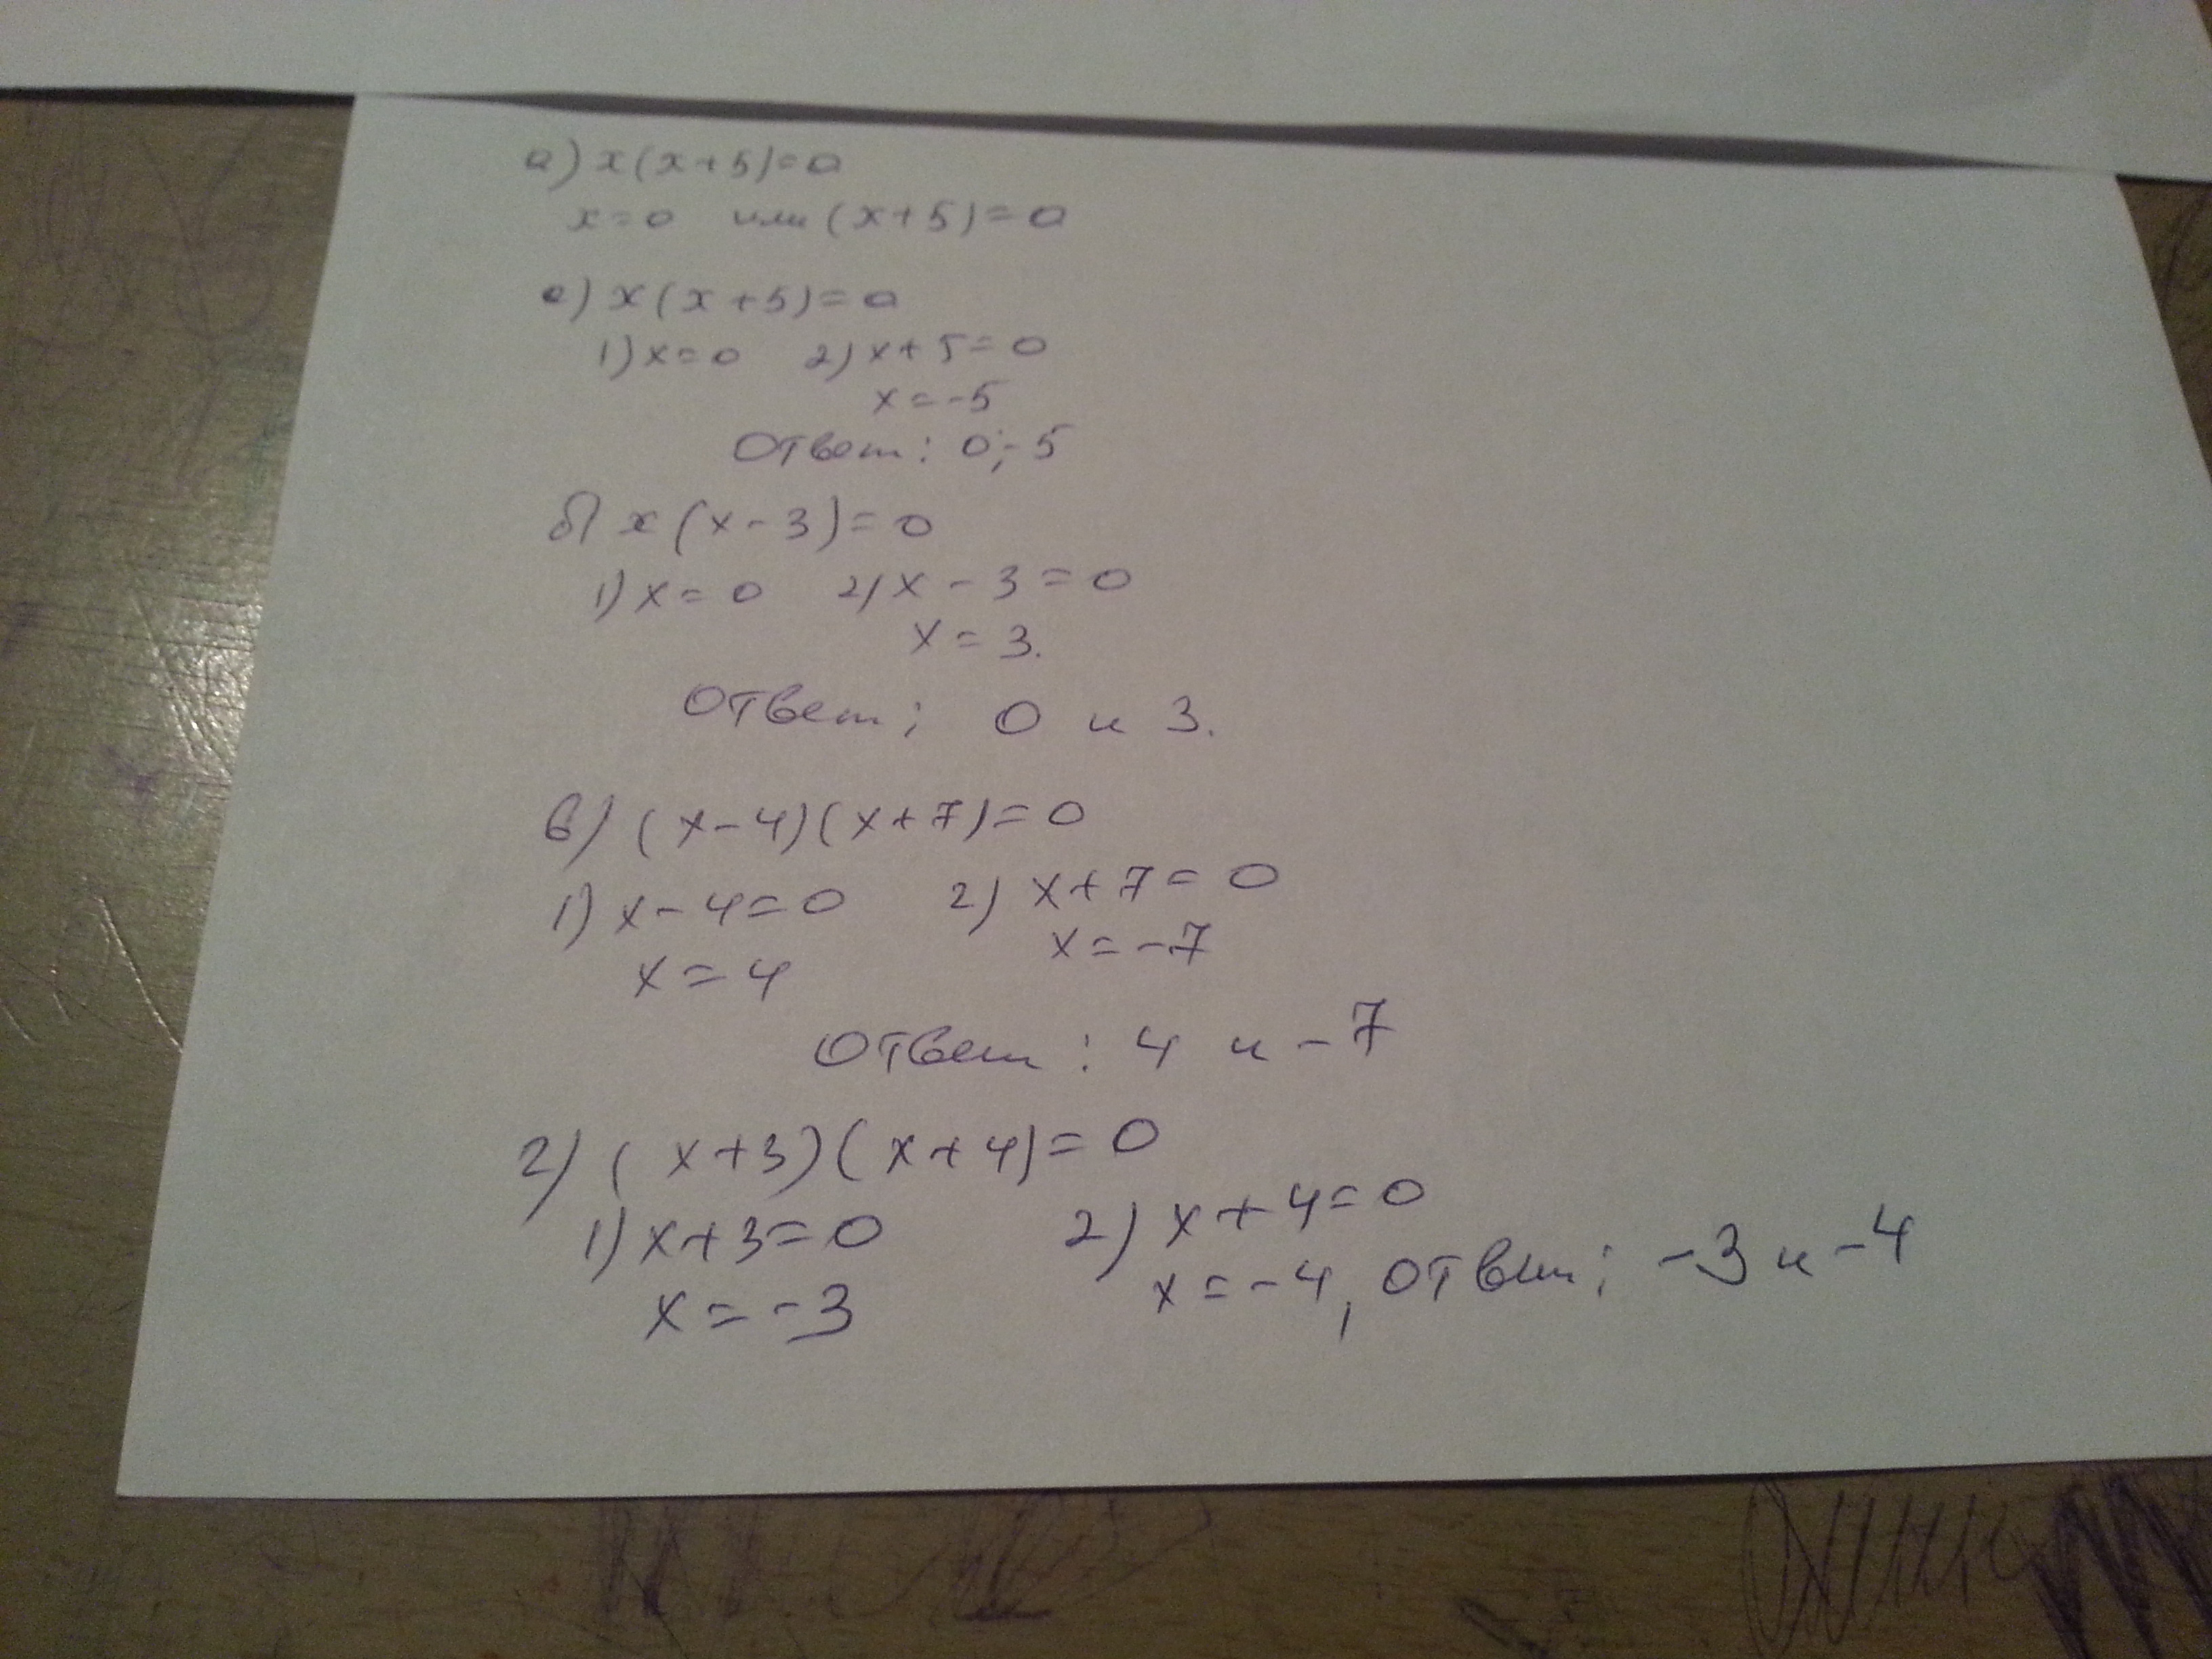 а) x(x+5)=0
x=0 или (x+5)=0
а) x(x+5)=0
1) x=0 2) x+5=0
x=-5
Ответ: 0;-5
б) x(x-3)=0
1) x=0 2) x-3=0
x=3.
Ответ: 0 и 3.
в) (x-4)(x+7)=0
1) x-4=0 2) x+7=0
x=4 x=-7
Ответ: 4 и -7
г) (x+3)(x+4)=0
1) x+3=0 2) x+4=0
x=-3 x=-4, Ответ: -3 и -4